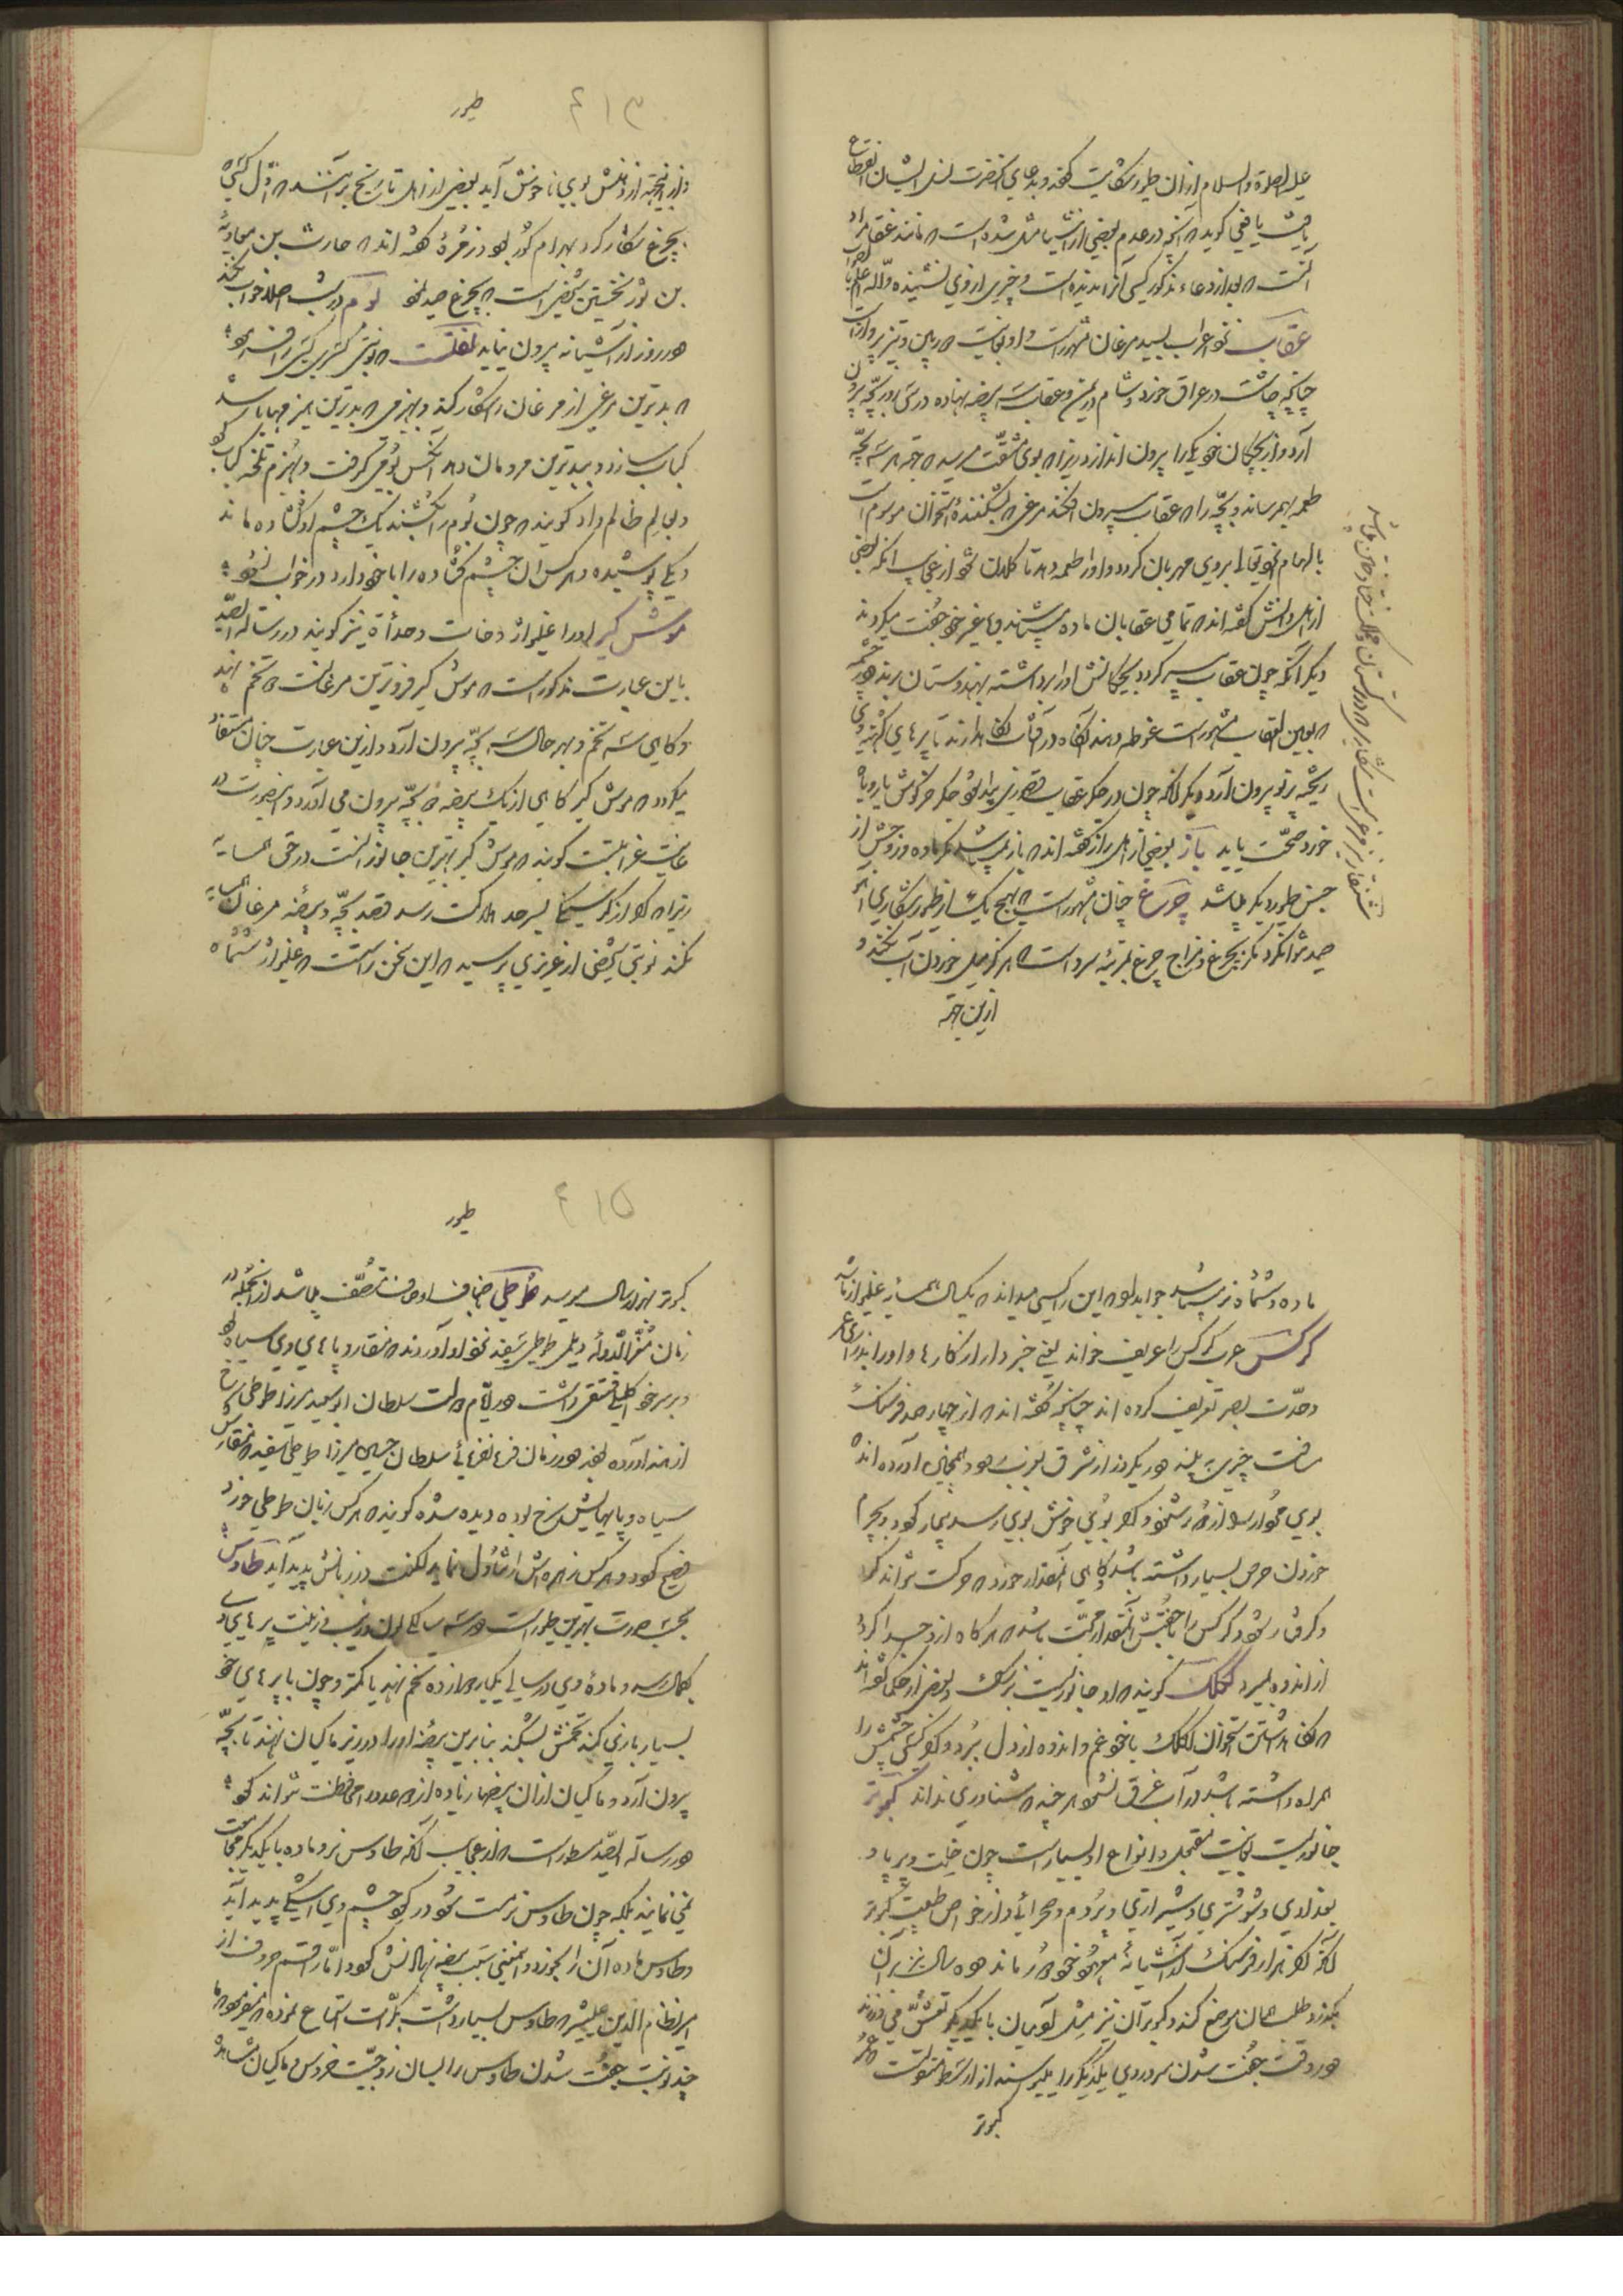 علیه الصلوة والسلام ازان طیور شکایت کردند و بدعای آنحضرت نسل ایشان انقطاع
یافت یافعی گوید که آنچه در عدم بعضی از اشیا مثل شده است که مانند عنقا مراد
آنست که بعد از دعاء مذکور کسی آنرا ندیده است و خبری از وی نشنیده والله اعلم بالصواب
عقاب نزد اعراب بسید مرغان مشهور است و او بغایت حدید بین و تیز پرواز است
چنانچه چاشت در عراق خورد و شام در یمن و عقاب سه بیضه نهاده در سی روز بچه برون
آرد و از بچگان خود یکی را بیرون اندازد زیرا که بوی مشقت میرسد جهة هر سه بچه
طعمه بهم رساند و بچه را که عقاب بیرون افکند مرغی که بشکننده استخوان موسوم است
بالهام الهی تعالی بروی مهربان گردد و او را طعمه دهد تا کلان شود از عجایب آنکه بعضی
از اهل دانش گفته اند که تمامی عقابان ماده می باشند و با غیر خود جفت میگردند
دیگر آنکه چون عقاب پیر گردد بچگانش او را برداشته بهندوستان برند و در چشمه
که بعین العقاب مشهور است غوطه دهند آنگاه در آفتاب نگاه دارند تا پرهای کهنه وی
ریخته پر نو بیرون آرد و دیگر آنکه چون در جگر عقاب مرضی پیدا شود جگر خرگوش یا روباه
خورد صحت یابد باز بعضی از اهل راز گفته اند که باز نمی باشد مگر ماده و زوجش از
جنس طیور دیگر باشد چرغ چنان مشهور است که هیچ یک از طیور شکاری آهو
صید نتواند کرد مگر چرغ و مزاج چرغ بمرتبه سرد است که هرگز میل خوردن آب نکند و
ازین جهة
طیور
۴۱۳
ازین جهة از دهنش بوی ناخوش آید بعضی از اهل تاریخ بر آنند که اول کسی که
بچرغ شکار کرد بهرام گور بود و زمره گفته اند که حارث بن معاویه
بن ثور نخستین شخصی است که بچرغ صید نمود بوم در شب اصلا خواب نکند
و در روز از آشیانه بیرون نیاید
که بدترین مرغی از مرغان را شکار کند و بهیزمی که بدترین هیزمها باشد
کباب سازد و ببدترین مردمان دهد آنکس بومی گرفت و بهیزم تلخه کباب کرد
و بعالم ظالم داد گویند که چون بوم را بکشند یک چشم او گشاده ماند
و یکی پوشیده و هر کس آن چشم گشاده را با خود دارد در خواب نشود
موش گیر او را غلیواژ و خات و حدأة نیز گویند و در رسالة الصید
باین عبارت مذکور است که موش گیر فروترین مرغانست دو تخم نهد
و گاهی سه تخم و بهر حال سه بچه بیرون آرد و ازین عبارت چنان مستفاد
میگردد که موش گیر گاهی از یک بیضه دو بچه بیرون می آورد و اینصورت در
غایت غرابتست گویند که موش گیر بهترین جانورانست در حق همسایه
زیرا که اگر از گرسنگی بسرحد هلاکت رسد قصد بچه و بیضه مرغان همسایه
نکند نوبتی شخصی از عزیزی پرسید که این سخن راستست که غلیواژ شش ماه
ماده و ششماه نر میباشد جواب داد که این را کسی میداند که یکسال همسایه غلیواژ باشد
کرکس عرب کرکس را عریف خوانند یعنی خبردار از کارها و او را بدرازی عمر
و حدت بصر تعریف کرده اند چنانچه گفته اند که از چهار صد فرسنگ
مسافت چیزی به بیند و در یک روز از مشرق بمغرب رود و همچنین آورده اند
بوی خوش بوی رسد بیمار گردد و بر
خوردن حرص بسیار داشته باشد گاهی آنمقدار خورد که حرکت نتواند کرد
و گرفتار شود و کرکس را با جفتش آنمقدار محبت باشد که هرگاه ازو جدا گردد
از اندوه بمیرد لکلک گویند که او جانوریست زیرک و بعضی از حکما گفته اند
که نگاه داشتن استخوان لکلک با خود غم و اندوه از دل ببرد و اگر کسی چشمش را
همراه داشته باشد در آب غرق نشود هر چند که شناوری نداند کبوتر
جانوریست بغایت متحمل و انواع او بسیار است چون
بغدادی و شوشتری و شیرازی و مردم و صحرائی و از خواص طبیعت کبوتر
آنکه اگر هزار فرسنگ از آشیانه معهود خود دور ماند و ده سال نیز بر آن
بگذرد طلب همان موضع کند و کبوتران نیز مثل آدمیان با یکدیگر تعشق می ورزند
و در وقت جفت شدن سر و روی یکدیگر را میبوسند از ارسطو منقولست که عمر
کبوتر
طیور
۴۱۵
کبوتر بهزار سال میرسد طوطی اصناف او مختلف میباشد از آنجمله در
زمان معز الدوله دیلمی طوطی سفید نزد او آوردند که منقار و پاهای وی سیاه بود
و بر سر خود کاکلی فستقی داشت و در ایام دولت سلطان ابوسعید میرزا طوطی سرخ
از هند آورده بودند و در زمان فرمانفرمائی سلطان حسین میرزا طوطی سفید که منقارش
سیاه و پایهایش سرخ بوده دیده شده گویند که هر کس زبان طوطی خورد
فصیح گردد و هر کس زهره اش را تناول نماید لکنت در زبانش پدید آید طاوس
بحسب صورت بهترین طیور است و در سه سالگی لون و زیب و زینت پرهای وی
بکمال رسد و ماده وی در سالی یکبار دوازده تخم نهد یا کمتر و چون با پرهای خود
بسیار بازی کند تخمش بشکند بنابرین بیضه او را در زیر ماکیان نهند تا بچه
بیرون آرد و ماکیان از آن بیضها زیاده از دو عدد را محافظت نتواند نمود
و در رسالة الصید مسطور است که از عجایب آنکه طاوس نر و ماده با یکدیگر مجامعت
نمی نمایند بلکه چون طاوس نر مست شود در گوشه چشم وی اشکی پدید آید
و طاوس ماده آن را بخورد و اینمعنی سبب بیضه نهادنش گردد اما راقم حروف از
امیر نظام الدین علیشیر که طاوس بسیار داشت بکرات استماع نموده که میفرمودند
چند نوبت جفت شدن طاوس را بسان زوجیت خروس و ماکیان مشاهده